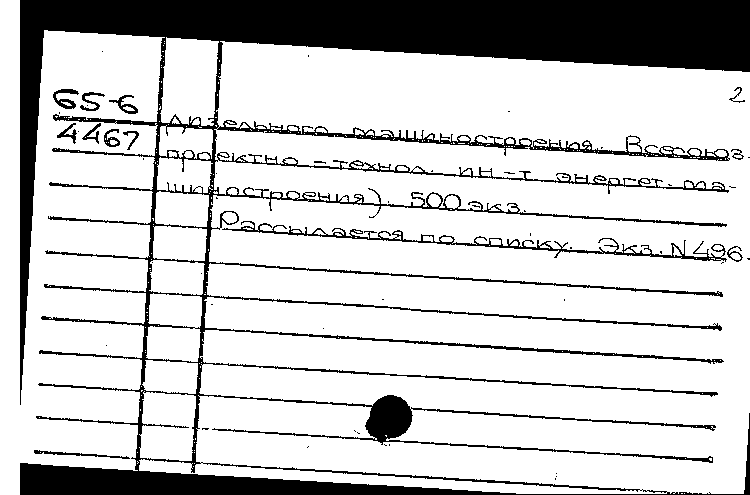 2
65-6
4467
дизельного машиностроения. Всесоюз.
проектно-технол. ин-т энергет. ма-
шиностроения). 500 экз.
Рассылается по списку. Экз. N 496.